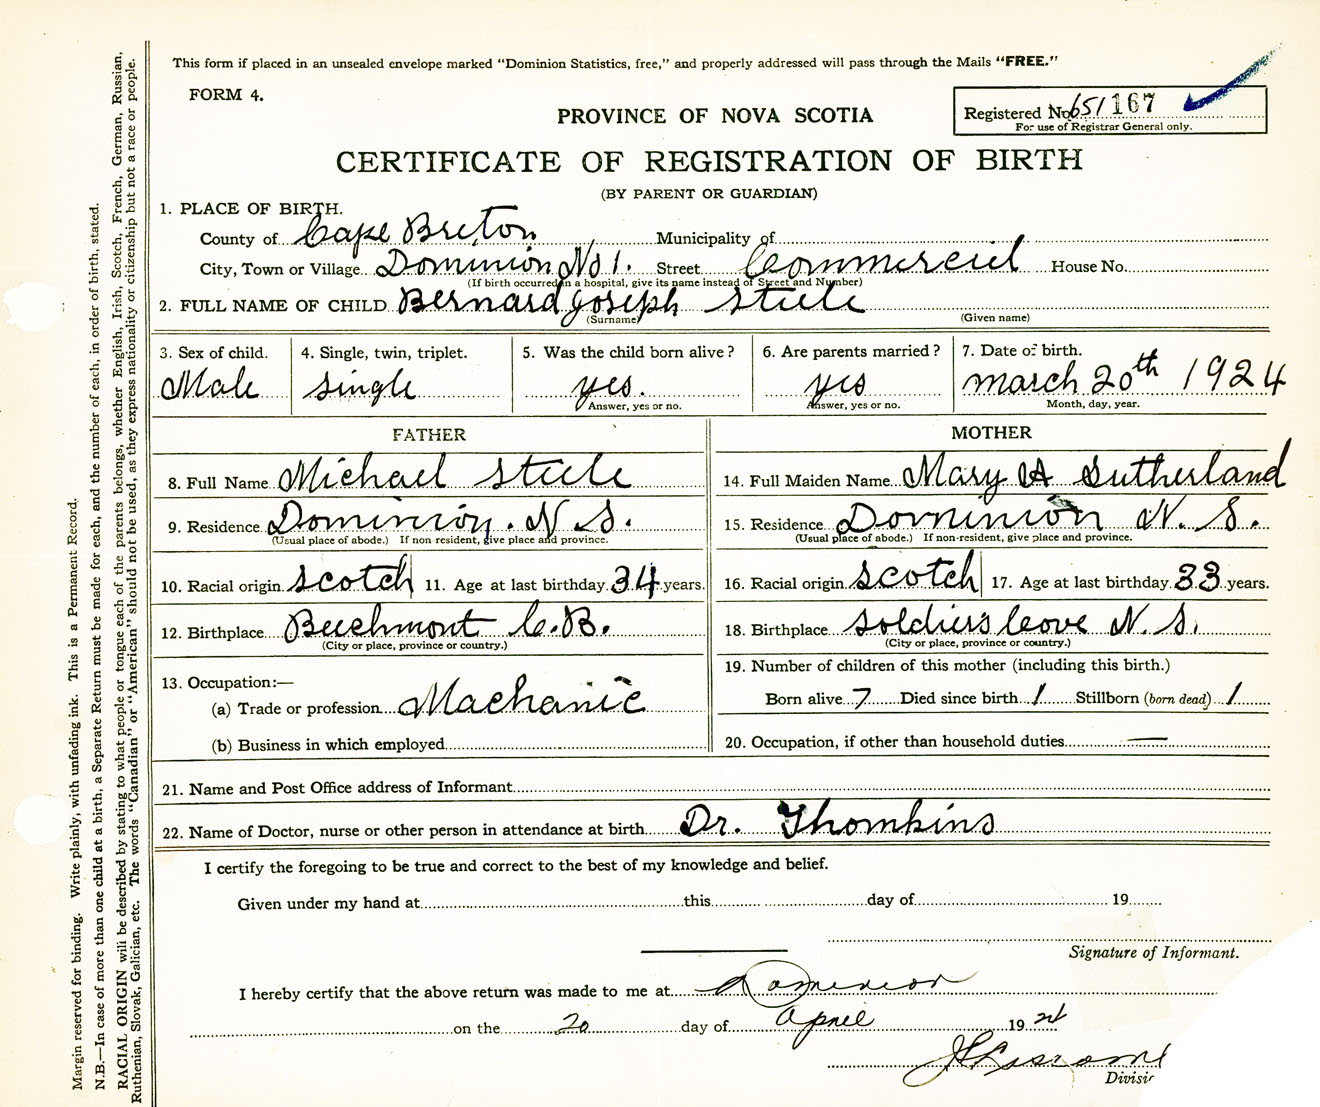 This form if placed in an unsealed envelope marked "Dominion Statistics, free," and properly addressed will pass through the Mails "FREE."
FORM 4.
PROVINCE OF NOVA SCOTIA
Registered No. 651167
For use of Registrar General only.
CERTIFICATE OF REGISTRATION OF BIRTH
(BY PARENT OR GUARDIAN)
1. PLACE OF BIRTH.
County of Cape Breton Municipality of
City, Town or Village Dominion No 1. Street Commerciel House No.
(If birth occurred in a hospital, give its name instead of Street and Number)
2. FULL NAME OF CHILD Bernard Joseph Steele
(Surname) (Given name)
3. Sex of child. 4. Single, twin, triplet. 5. Was the child born alive? 6. Are parents married? 7. Date of birth.
Male single yes. yes march 20th 1924
Answer, yes or no. Answer, yes or no. Month, day, year.
FATHER MOTHER
8. Full Name Michael Steele 14. Full Maiden Name Mary A Sutherland
9. Residence Dominion. N. S. 15. Residence Dominion N. S.
(Usual place of abode.) If non-resident, give place and province. (Usual place of abode.) If non-resident, give place and province.
10. Racial origin scotch 11. Age at last birthday 34 years. 16. Racial origin scotch 17. Age at last birthday 33 years.
12. Birthplace Beechmont C.B. 18. Birthplace soldiers cove N. S.
(City or place, province or country.) (City or place, province or country.)
13. Occupation:— 19. Number of children of this mother (including this birth.)
(a) Trade or profession Machanic Born alive 7 Died since birth 1 Stillborn (born dead) 1
(b) Business in which employed 20. Occupation, if other than household duties —
21. Name and Post Office address of Informant
22. Name of Doctor, nurse or other person in attendance at birth Dr. Thomkins
I certify the foregoing to be true and correct to the best of my knowledge and belief.
Given under my hand at this day of 19
Signature of Informant.
I hereby certify that the above return was made to me at Dominion
on the 20 day of April 19 24
Divisi
Margin reserved for binding. Write plainly, with unfading ink. This is a Permanent Record.
N.B.—In case of more than one child at a birth, a Separate Return must be made for each, and the number of each, in order of birth, stated.
RACIAL ORIGIN will be described by stating to what people or tongue each of the parents belongs, whether English, Irish, Scotch, French, German, Russian,
Ruthenian, Slovak, Galician, etc. The words "Canadian" or "American" should not be used, as they express nationality or citizenship but not a race or people.